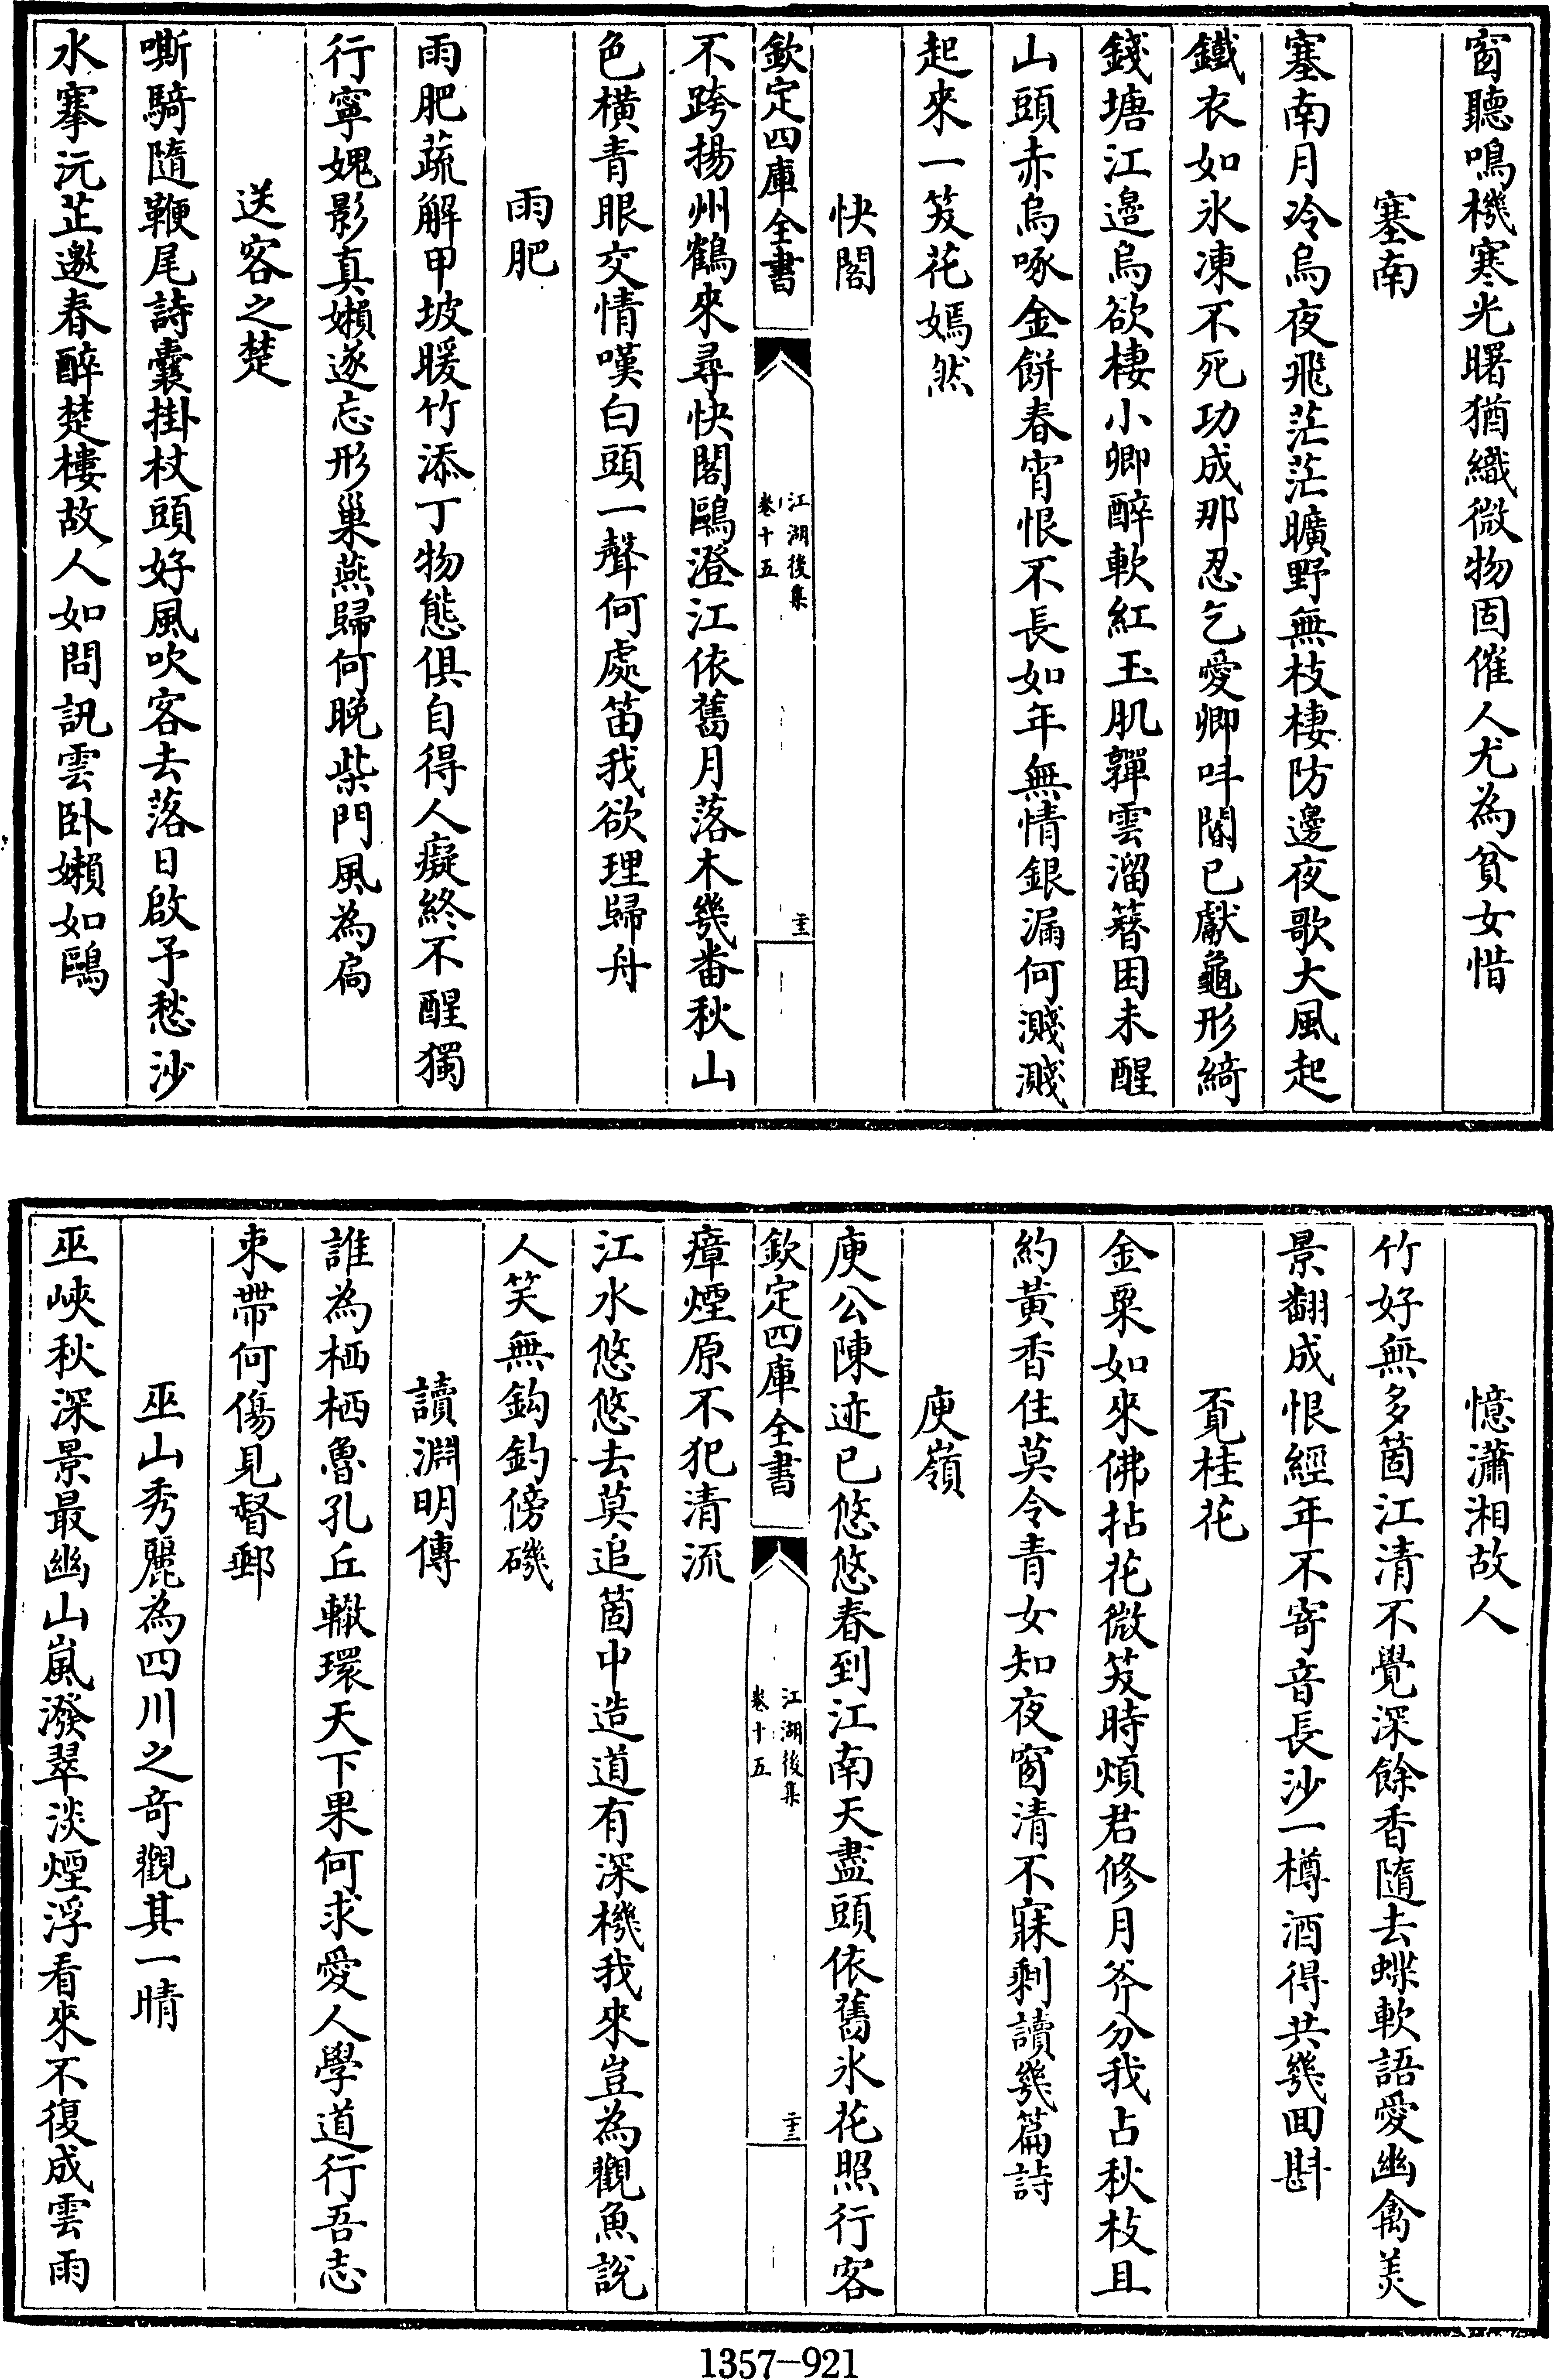 窗聽鳴機寒光曙猶織微物固催人尤為貧女惜
塞南
塞南月冷烏夜飛茫茫曠野無枝棲防邊夜歌大風起
鐵衣如氷凍不死功成那忍乞愛卿呌閽已獻龜形綺
錢塘江邉烏欲棲小卿醉軟紅玉肌嚲雲溜簪困未醒
山頭赤烏啄金餅春宵恨不長如年無情銀漏何濺濺
起來一笑花嫣然
快閣
欽定四庫全書
江湖後集
卷十五
不跨揚州鶴來尋快閣鷗澄江依舊月落木幾畨秋山
色橫青眼交情嘆白頭一聲何處笛我欲理歸舟
雨肥
雨肥蔬解甲坡暖竹添丁物態俱自得人癡終不醒獨
行寧媿影真嬾遂忘形巢燕歸何晩柴門風為扃
送客之楚
嘶騎隨鞭尾詩囊掛杖頭好風吹客去落日啟予愁沙
水搴沅芷邀春醉楚樓故人如問訊雲卧嬾如鷗
憶瀟湘故人
竹好無多箇江清不覺深餘香隨去蝶軟語愛幽禽美
景翻成恨經年不寄音長沙一樽酒得共幾回斟
覔桂花
金粟如來佛拈花微笑時煩君修月斧分我占秋枝且
約黃香住莫令青女知夜窗清不寐剩讀幾篇詩
庾嶺
庾公陳迹已悠悠春到江南天盡頭依舊氷花照行客
欽定四庫全書
江湖後集
卷十五
瘴煙原不犯清流
江水悠悠去莫追箇中造道有深機我來豈為觀魚說
人笑無鈎釣傍磯
讀淵明傳
誰為栖栖魯孔丘轍環天下果何求愛人學道行吾志
束帶何傷見督郵
巫山秀麗為四川之奇觀其一晴
巫峽秋深景最幽山嵐潑翠淡煙浮看來不復成雲雨
1357-921